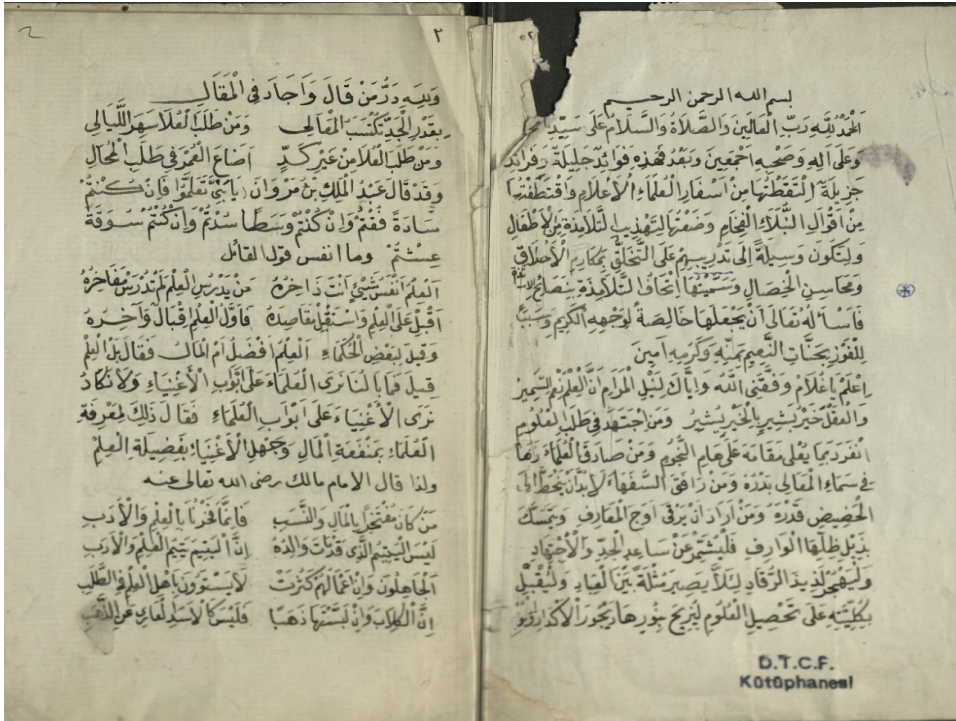 بسم الله الرحمن الرحيم
الْحَمْدُ لِلّٰهِ رَبِّ الْعَالَمِينَ وَالصَّلَاةُ وَالسَّلَامُ عَلَى سَيِّدِنَا
وَعَلَى آلِهِ وَصَحْبِهِ أَجْمَعِينَ وَبَعْدُ فَهٰذِهِ فَوَائِدُ جَلِيلَةٌ وَفَرَائِدُ
جَزِيلَةٌ اِلْتَقَطْتُهَا مِنْ اَسْفَارِ الْعُلَمَاءِ الْأَعْلَامِ وَاقْتَطَفْتُهَا
مِنْ اَقْوَالِ النُّبَلَاءِ الْفِخَامِ وَضَعْتُهَا لِتَهْذِيبِ التَّلَامِذَةِ مِنَ الْأَطْفَالِ
وَلِتَكُونَ وَسِيلَةً إِلَى تَدْرِيبِهِمْ عَلَى التَّخَلُّقِ بِمَكَارِمِ الْأَخْلَاقِ
وَمَحَاسِنِ الْخِصَالِ وَسَمَّيْتُهَا اِتْحَافَ التَّلَامِذَةِ بِنَصَائِحِ
فَاَسْأَلُهُ تَعَالَى أَنْ يَجْعَلَهَا خَالِصَةً لِوَجْهِهِ الْكَرِيمِ وَسَبَبًا
لِلْفَوْزِ بِجَنَّاتِ النَّعِيمِ بِمَنِّهِ وَكَرَمِهِ آمِينَ
اِعْلَمْ يَا غُلَامُ وَفَّقَنِي اللهُ وَإِيَّاكَ لِنَيْلِ الْمَرَامِ اَنَّ الْعِلْمَ نِعْمَ السَّمِيرُ
وَالْعَقْلَ خَيْرُ بَشِيرٍ بِالْخَيْرِ يُشِيرُ وَمَنِ اجْتَهَدَ فِي طَلَبِ الْعُلُومِ
اِنْفَرَدَ بِمَا يُعْلِي مَقَامَهُ عَلَى هَامِ النُّجُومِ وَمَنْ صَادَقَ الْعُلَمَاءَ زَهَا
فِي سَمَاءِ الْمَعَالِي بَدْرُهُ وَمَنْ رَافَقَ السُّفَهَاءَ لَابُدَّ اَنْ يَنْحَطَّ إِلَى
الْحَضِيضِ قَدْرُهُ وَمَنْ اَرَادَ اَنْ يَرْقَى اَوْجَ الْمَعَارِفِ وَيَتَمَسَّكَ
بِذَيْلِ ظِلِّهَا الْوَارِفِ فَلْيُشَمِّرْ عَنْ سَاعِدِ الْجِدِّ وَالْاِجْتِهَادِ
وَلْيَهْجُرْ لَذِيذَ الرُّقَادِ لِئَلَّا يَصِيرَ مُثْلَةً بَيْنَ الْعِبَادِ وَلْيُقْبِلْ
بِكُلِّيَّتِهِ عَلَى تَحْصِيلِ الْعُلُومِ لِيُزِيحَ بِنُورِهَا دَيْجُورَ الْأَكْدَارِ
D.T.C.F.
Kütüphanesi
٢
وَلِلّٰهِ دَرُّ مَنْ قَالَ وَاَجَادَ فِي الْمَقَالِ
بِقَدْرِ الْجِدِّ تُكْتَسَبُ الْمَعَالِي وَمَنْ طَلَبَ الْعُلَا سَهِرَ اللَّيَالِي
وَمَنْ طَلَبَ الْعُلَا مِنْ غَيْرِ كَدٍّ اَضَاعَ الْعُمْرَ فِي طَلَبِ الْمُحَالِ
وَقَدْ قَالَ عَبْدُ الْمَلِكِ بْنُ مَرْوَانَ (يَا بَنِيَّ تَعَلَّمُوا فَإِنْ كُنْتُمْ
سَادَةً فُقْتُمْ وَإِنْ كُنْتُمْ وَسَطًا سُدْتُمْ وَإِنْ كُنْتُمْ سُوقَةً
عِشْتُمْ وما انفس قول القائل
اَلْعِلْمُ اَنْفَسُ شَيْئٍ اَنْتَ ذَاخِرُهُ مَنْ يَدْرُسِ الْعِلْمَ لَمْ تَدْرُسْ مَفَاخِرُهُ
اَقْبِلْ عَلَى الْعِلْمِ وَاسْتَقْبِلْ مَقَاصِدَهُ فَاَوَّلُ الْعِلْمِ اِقْبَالٌ وَآخِرُهُ
وَقِيلَ لِبَعْضِ الْحُكَمَاءِ اَلْعِلْمُ اَفْضَلُ اَمِ الْمَالُ فَقَالَ بَلِ الْعِلْمُ
قِيلَ فَمَا بَالُنَا نَرَى الْعُلَمَاءَ عَلَى اَبْوَابِ الْأَغْنِيَاءِ وَلَا نَكَادُ
نَرَى الْأَغْنِيَاءَ عَلَى اَبْوَابِ الْعُلَمَاءِ فَقَالَ ذٰلِكَ لِمَعْرِفَةِ
الْعُلَمَاءِ بِمَنْفَعَةِ الْمَالِ وَجَهْلِ الْأَغْنِيَاءِ بِفَضِيلَةِ الْعِلْمِ
ولذا قال الامام مالك رضى الله تعالى عنه
مَنْ كَانَ مُفْتَخِرًا بِالْمَالِ وَالنَّسَبِ فَإِنَّمَا فَخْرُنَا بِالْعِلْمِ وَالْأَدَبِ
لَيْسَ الْيَتِيمُ الَّذِي قَدْ مَاتَ وَالِدُهُ إِنَّ الْيَتِيمَ يَتِيمُ الْعِلْمِ وَالْأَدَبِ
الْجَاهِلُونَ وَإِنْ اَعْمَالُهُمْ كَثُرَتْ لَا يَسْتَوُونَ بِأَهْلِ الْعِلْمِ وَالطَّلَبِ
اِنَّ الْكِلَابَ وَإِنْ لَبَّسْتَهَا ذَهَبًا فَلَيْسَ كَالْأَسَدِ الْعَارِي عَنِ الذَّهَبِ